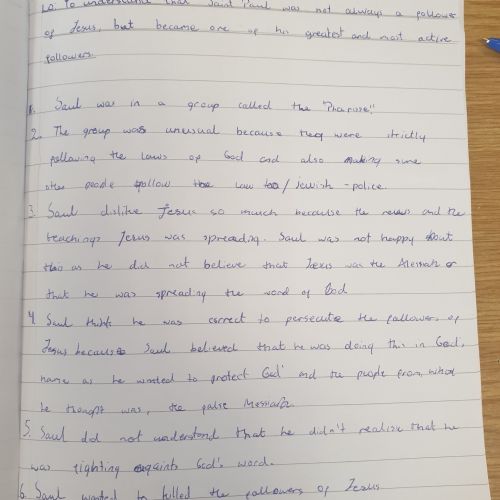 L.O. To understand that Saint Paul was not always a follower
of Jesus, but became one of his greatest and most active
followers.
1. Saul was in a group called the "Pharusee"
2. The group was unusual because they were strictly
following the laws of God and also making sure
other people follow the law too/ jewish - police.
3. Saul dislike Jesus so much because the news and the
teachings Jesus was spreading. Saul was not happy about
this as he did not believe that Jesus was the Messiah or
that he was spreading the word of God
4. Saul think he was correct to persecute the followers of
Jesus because Saul believed that he was doing this in God's
name as he wanted to protect God and the people from, what
he thought was, the false Messiah.
5. Saul did not understand that he didn't realise that he
was fighting againts God's word.
6. Saul wanted to killed the followers of Jesus